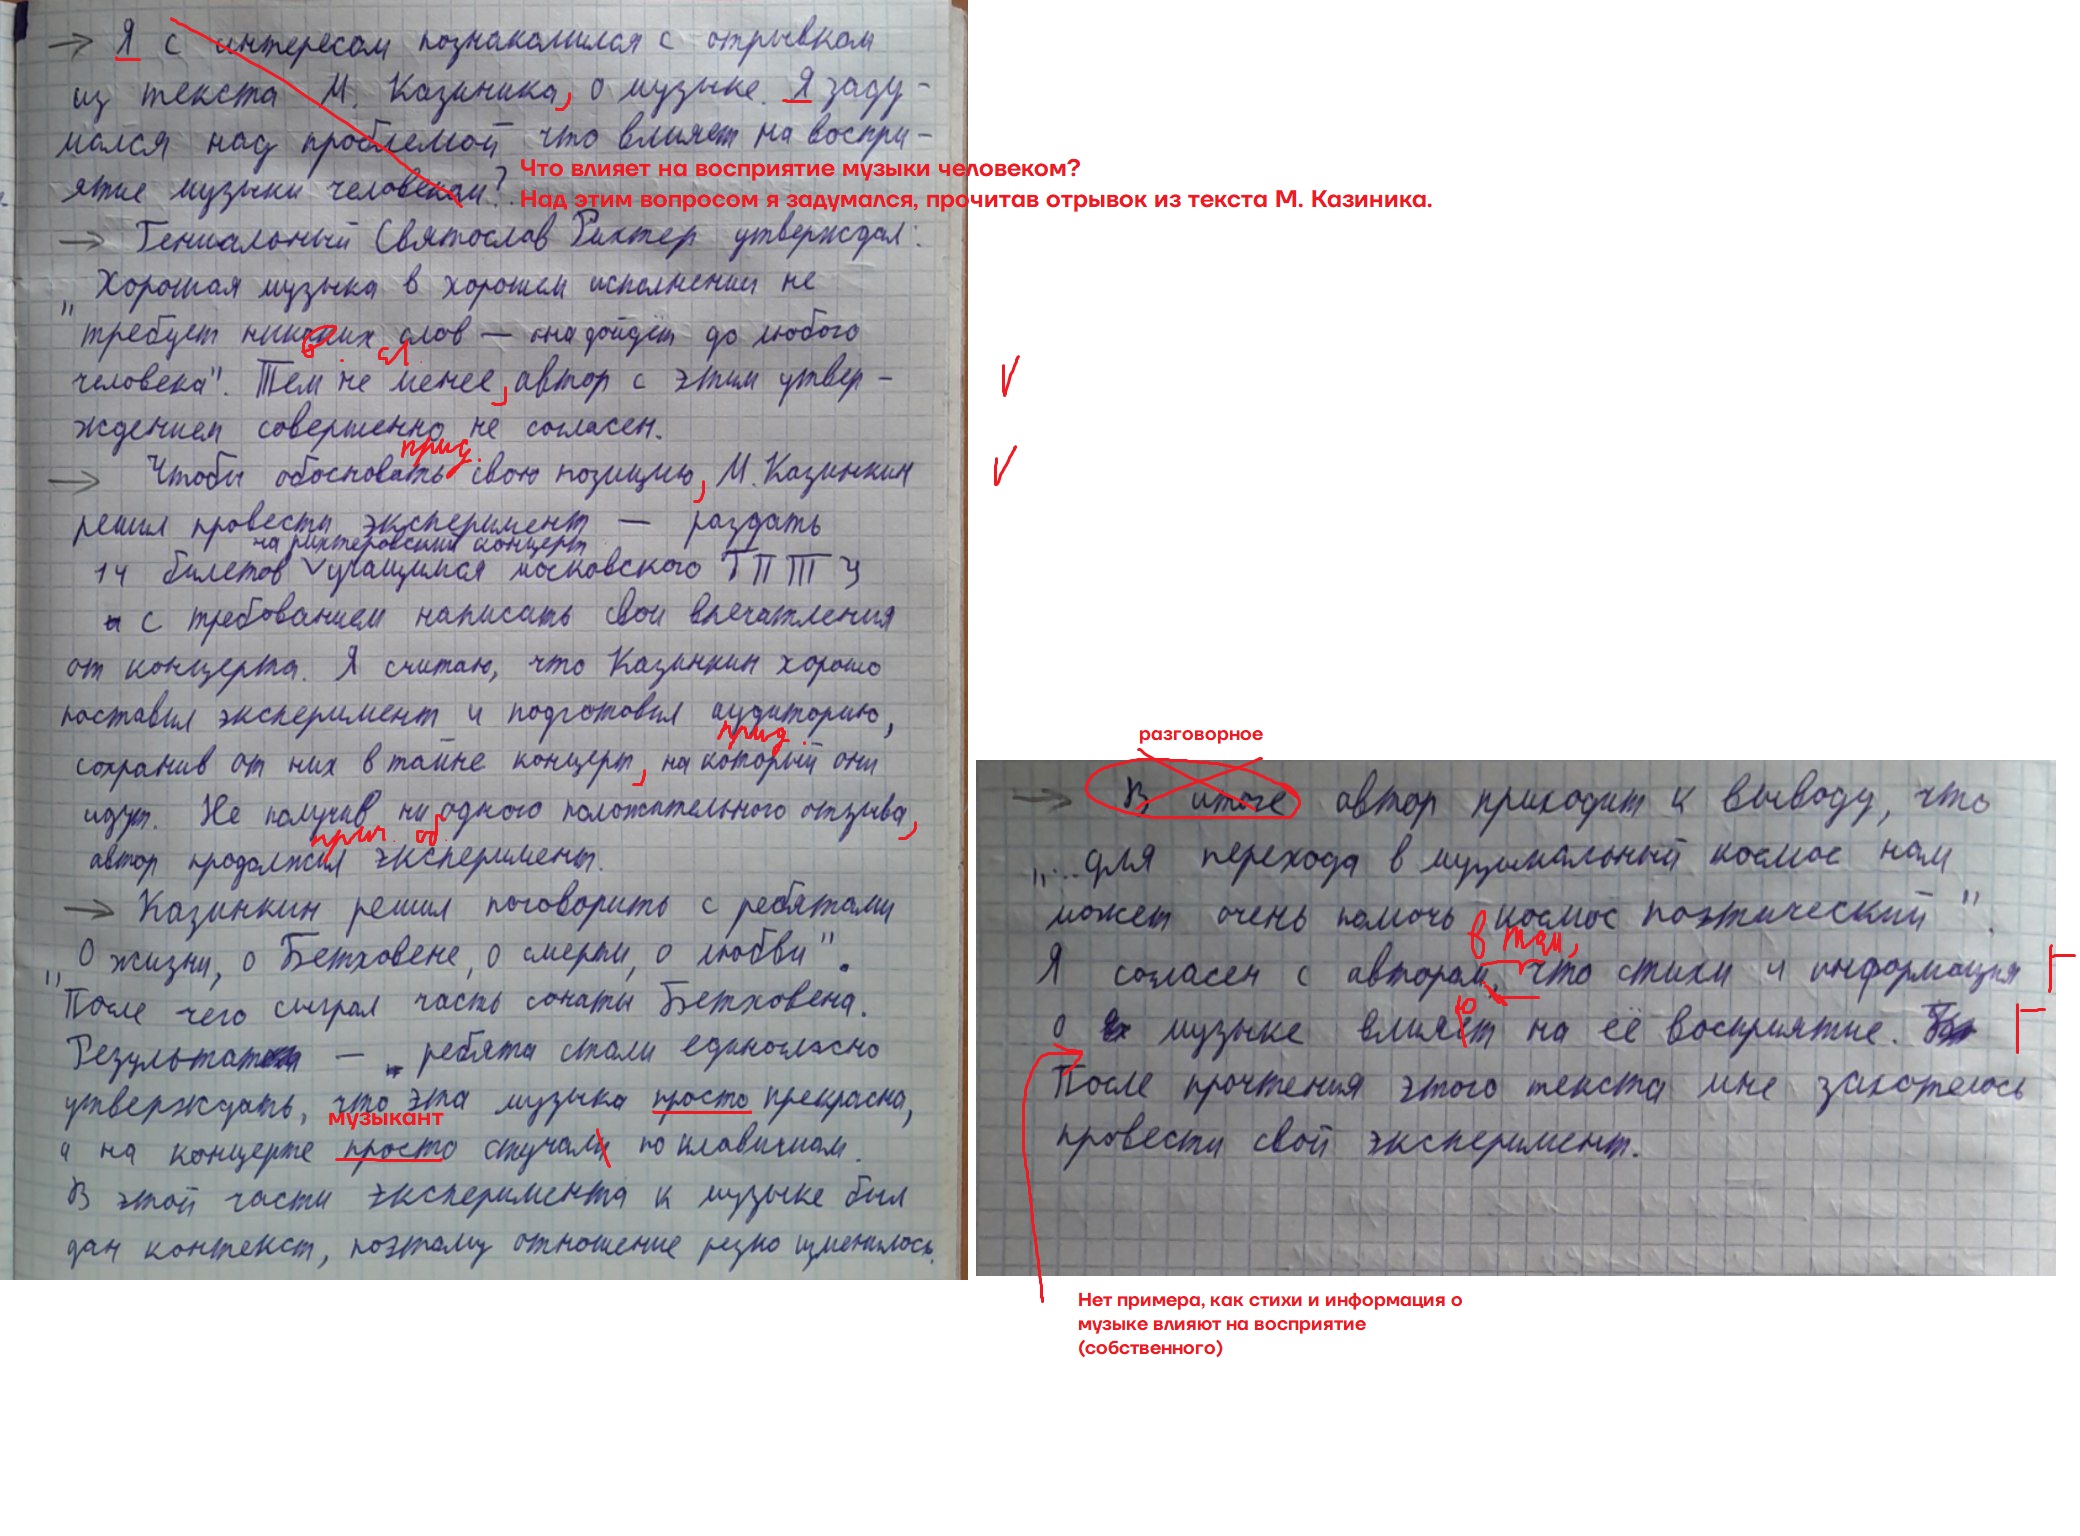 → Я с интересом познакомился с отрывком
из текста М. Казиника, о музыке. Я заду-
мался над проблемой что влияет на воспри-
ятие музыки человеком?
Что влияет на восприятие музыки человеком?
Над этим вопросом я задумался, прочитав отрывок из текста М. Казиника.
→ Гениальный Святослав Рихтер утверждал:
„Хорошая музыка в хорошем исполнении не
требует никаких слов — она дойдёт до любого
человека". Тем не менее, автор с этим утвер-
ждением совершенно не согласен.
прид.
→ Чтобы обосновать свою позицию, М. Казинкин
решил провести эксперимент — раздать
на рихтеровский концерт
14 билетов V учащимся московского ГПТУ
с требованием написать свои впечатления
от концерта. Я считаю, что Казинкин хорошо
поставил эксперимент и подготовил аудиторию,
прид.
сохранив от них в тайне концерт, на который они
идут. Не получив ни одного положительного отзыва,
прич. об
автор продолжил эксперимент.
→ Казинкин решил поговорить с ребятами
„О жизни, о Бетховене, о смерти, о любви".
После чего сыграл часть сонаты Бетховена.
Результат — ребята стали единогласно
утверждать, что эта музыка просто прекрасна,
музыкант
а на концерте просто стучали по клавишам.
В этой части эксперимента к музыке был
дан контекст, поэтому отношение резко изменилось.
разговорное
→ В итоге автор приходит к выводу, что
„...для перехода в музыкальный космос нам
может очень помочь космос поэтический".
в том,
Я согласен с автором, что стихи и информация
ю
о музыке влияет на её восприятие.
После прочтения этого текста мне захотелось
провести свой эксперимент.
Нет примера, как стихи и информация о
музыке влияют на восприятие
(собственного)